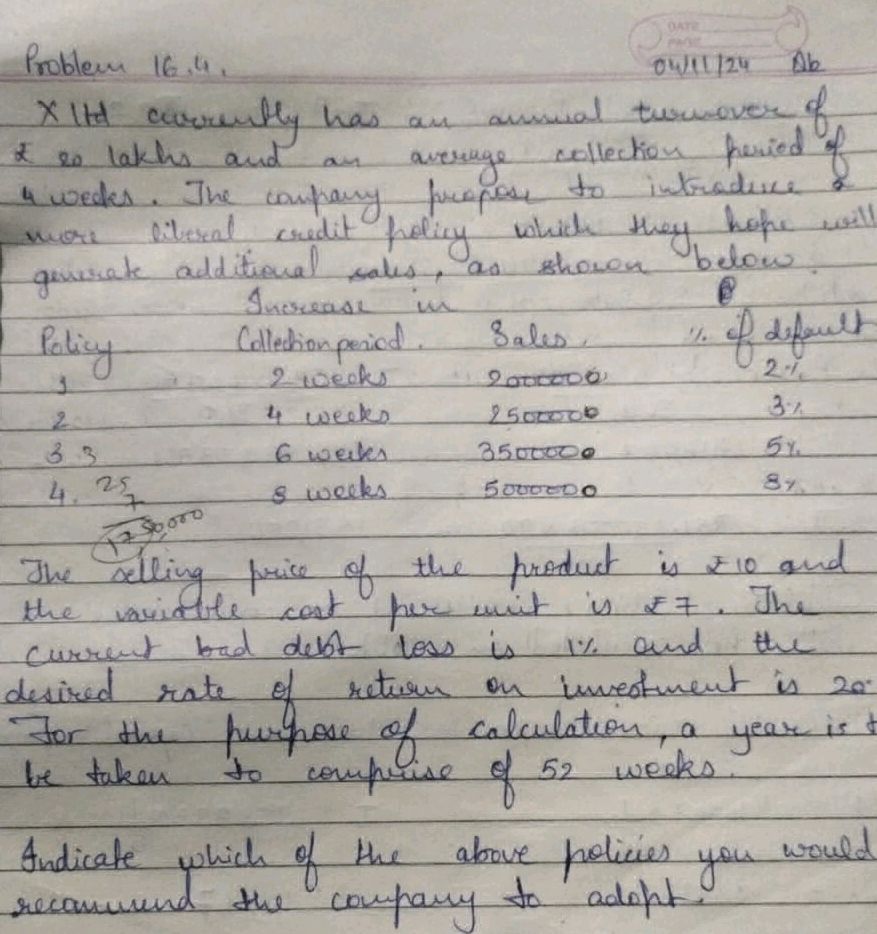 DATE
PAGE
Problem 16.4. 04/11/24 Ab
X ltd currently has an annual turnover of
₹ 20 lakhs and an average collection period of
4 weeks. The company propose to introduce a
more liberal credit policy which they hope will
generate additional sales, as shown below.
Increase in
Policy Collection period. Sales. % of default
1 2 weeks 2000000 2%
2 4 weeks 2500000 3%
3 3 6 weeks 3500000 5%
4. 8 weeks 5000000 8%
25
7
1750,000
The selling price of the product is ₹10 and
the variable cost per unit is ₹7. The
current bad debt loss is 1% and the
desired rate of return on investment is 20
For the purpose of calculation, a year is t
be taken to comprise of 52 weeks.
Indicate which of the above policies you would
recommend the company to adopt.